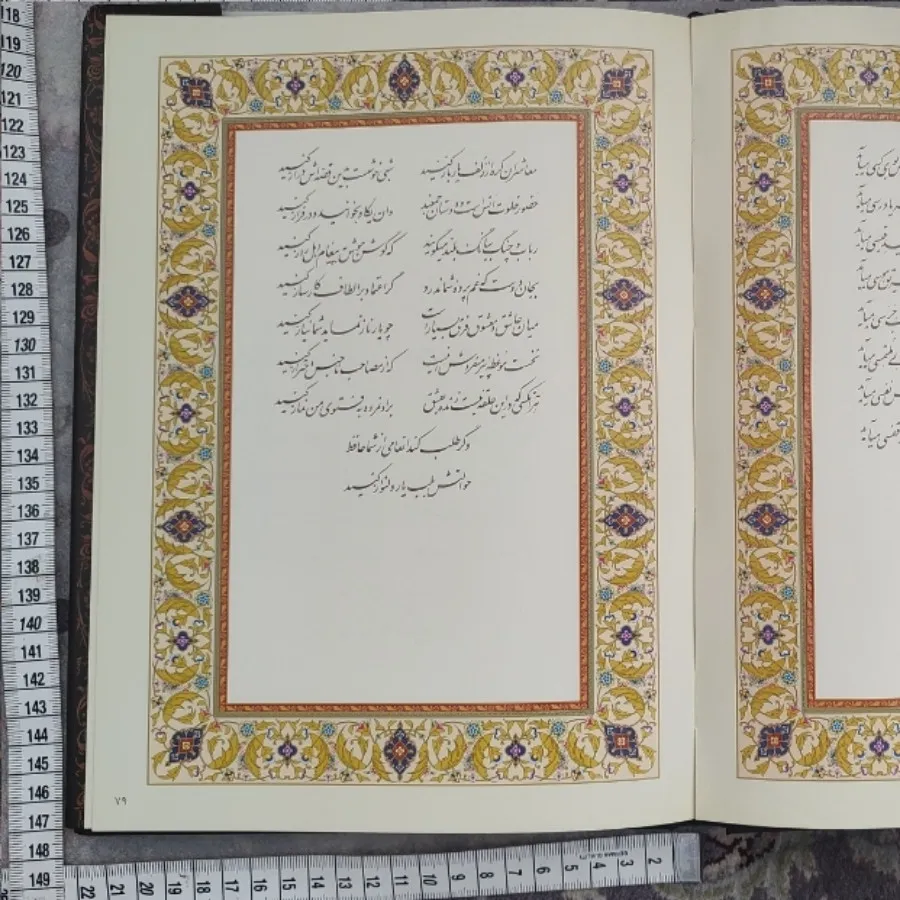 معاشران گره از زلف یار باز کنید شبی خوشست بدین قصه‌اش دراز کنید
حضور خلوت انس است و دوستان جمعند وان یکاد بخوانید و در فراز کنید
رباب و چنگ ببانگ بلند میگویند که گوش هوش به پیغام اهل راز کنید
بجان دوست که غم پرده شما ندرد گر اعتماد بر الطاف کارساز کنید
میان عاشق و معشوق فرق بسیار است چو یار ناز نماید شما نیاز کنید
نخست موعظه پیر میفروش اینست که از مصاحب ناجنس احتراز کنید
هر آنکسی که در این حلقه نیست زنده بعشق براو نمرده به فتوی من نماز کنید
وگر طلب کند انعامی از شما حافظ
حوالتش بلب یار دلنواز کنید
۷۹
کسی میآید
رسی میآید
قبسی میآید
کسی میآید
جرسی میآید
ملتمسی میآید
نفسی میآید
قفسی میآید
118
119
120
121
122
123
124
125
126
127
128
129
130
131
132
133
134
135
136
137
138
139
140
141
142
143
144
145
146
147
148
149
22 21 20 19 18 17 16 15 14 13 12 11 10 9 8 7 6 5 4 3 2